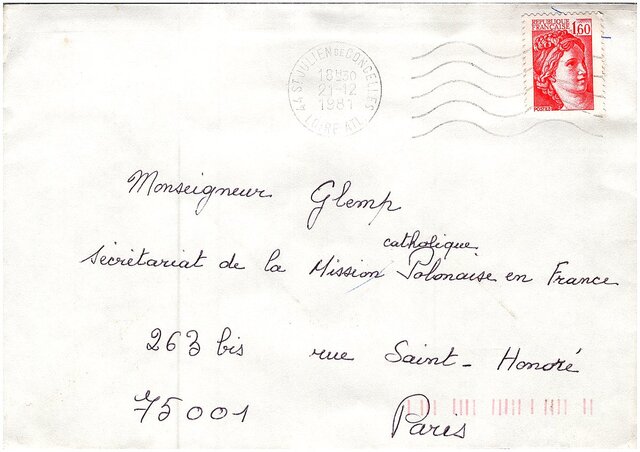 REPUBLIQUE
FRANCAISE
1,60
44 ST JULIEN DE CONCELLES
18H30
21-12
1981
LOIRE ATL.
Monseigneur Glemp
catholique
Sécrétariat de la Mission Polonaise en France
263 bis rue Saint-Honoré
75001 Paris